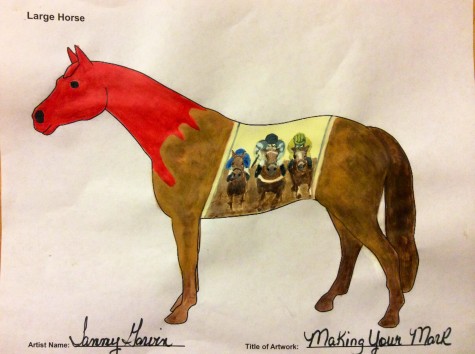 Large Horse
Artist Name:
Title of Artwork: Making Your Mark